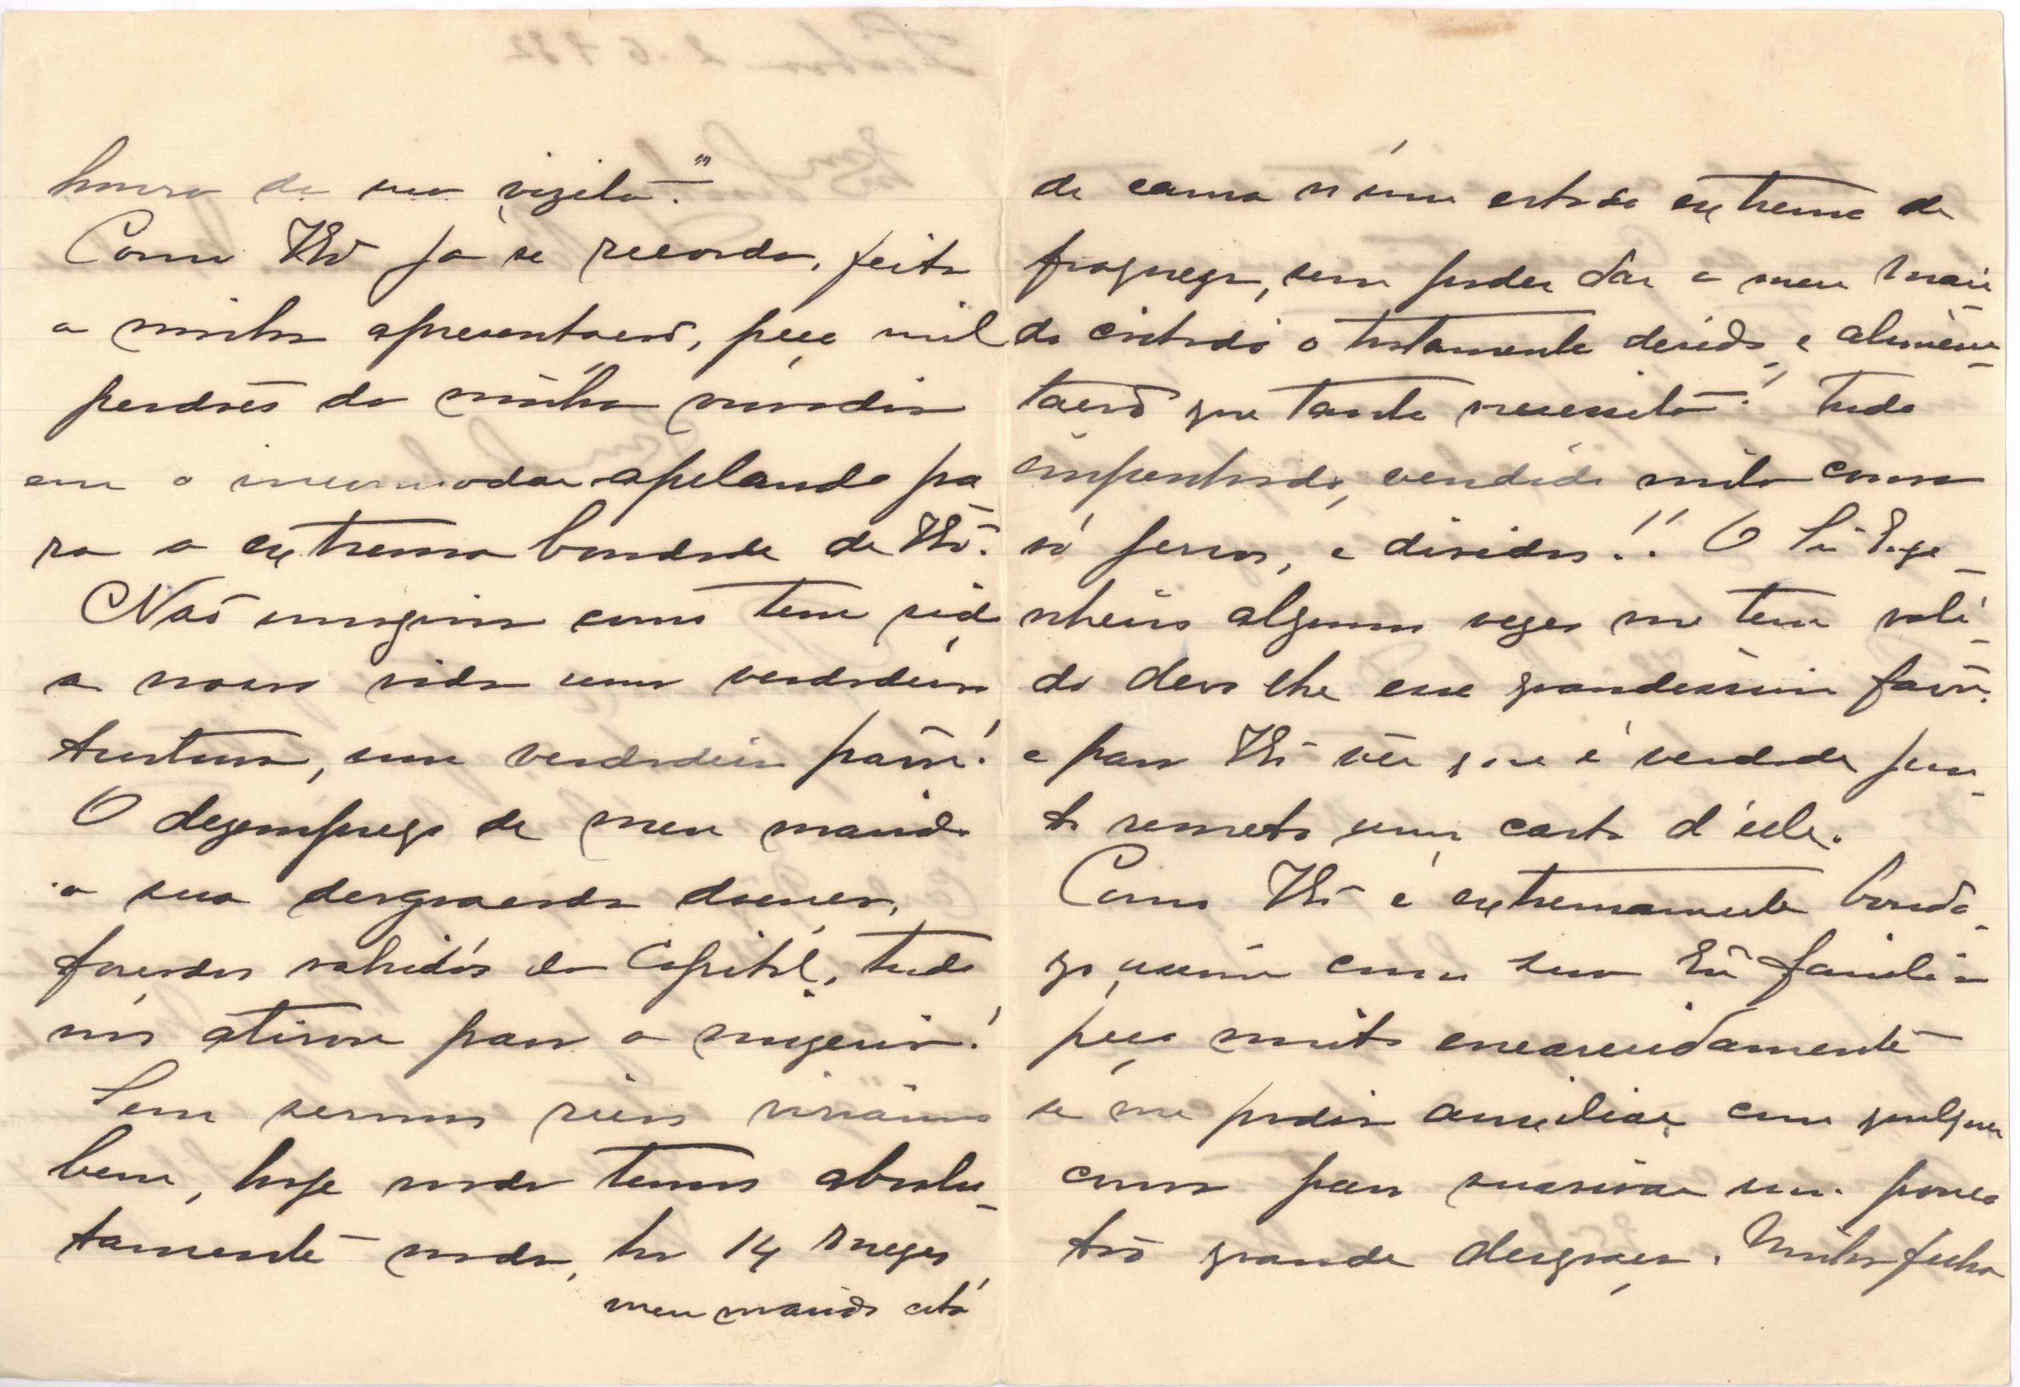 honra da sua vizita."
Como VExª ja se recorda, feita
a minha apresentacão, peço mil
perdões da minha ousadia
em o incommodar apelando pa-
ra a extrema bondade de VExª.
Não imagina como tem sido
a nossa vida uma verdadeira
tortura, um verdadeiro pavor!
O dezemprego de meu marido
a sua desgraçada doença,
tudo
nos atirou para a mizeria!
Sem sermos ricos viviamos
bem, hoje nada temos absolu-
tamente nada, ha 14 mezes,
meu marido está
de cama n'um estado extremo de
fraqueza, sem poder dar a meu mari-
do coitado o tratamento devido, e alimen-
tacão que tanto necessita! Tudo
empenhado, vendido, em casa
só juros, e dividas!! O Sr. Enge-
nheiro algumas vezes me tem vali-
do devo lhe esse grandessimo favor.
e para VExª vêr que é verdade jun-
to remeto uma carta d'ele.
Como VExª é extremamente bondo-
zo, assim como sua Exª familia
peço muito encarecidamente
se me podia auxiliar com qualquer
coisa para suavisar um pouco
tão grande desgraça. Minha filha